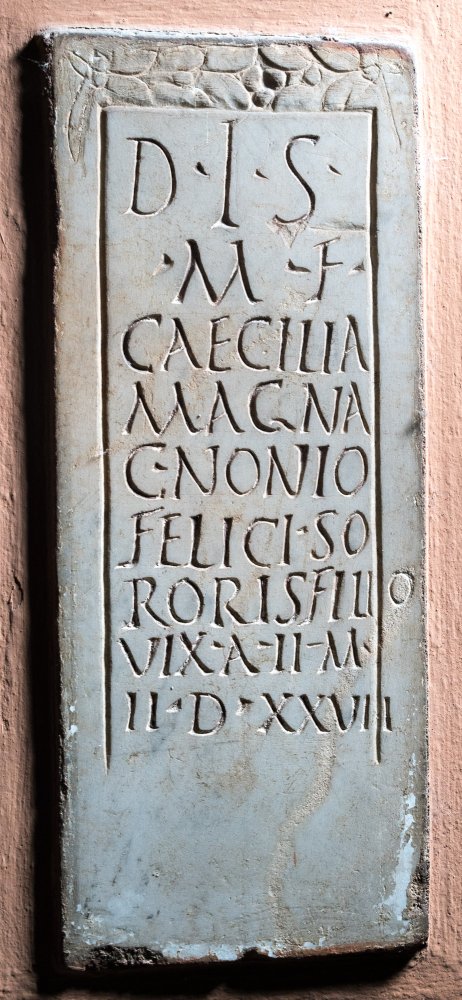 D · I · S ·
· M · F ·
CAECILIA
M · AGNA
C · NONIO
FELICI · SO
RORIS FILIO
VIX · A · II · M ·
II · D · XXVII